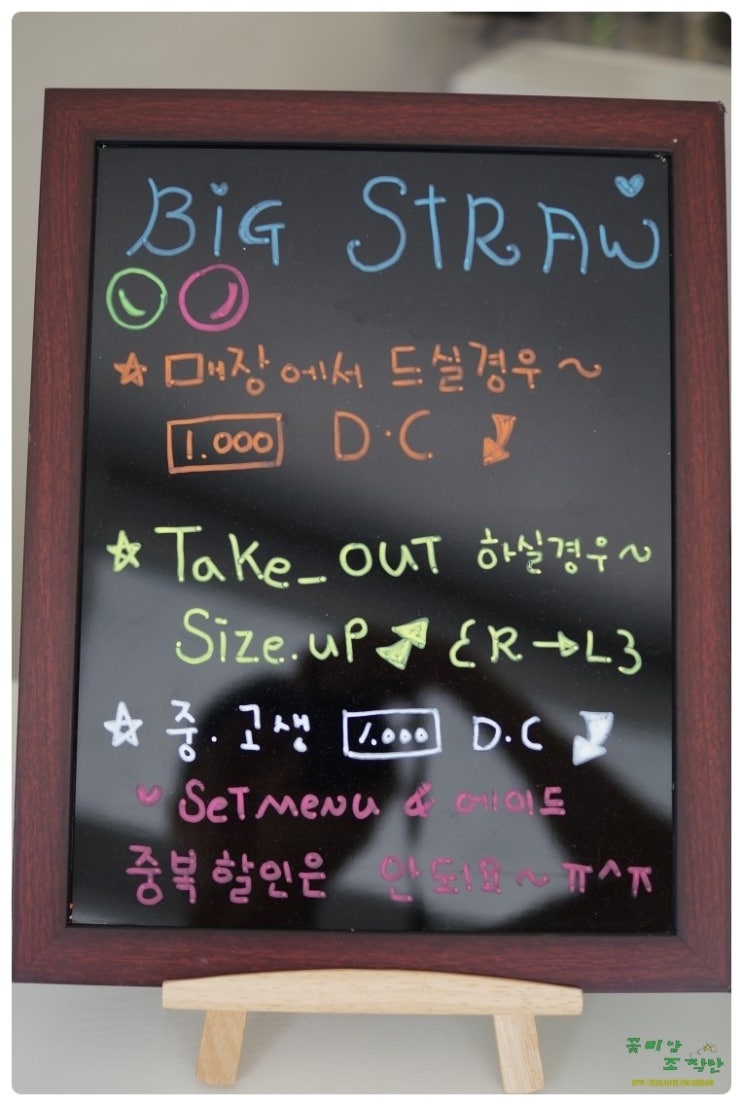 BiG STRAW
☆ 매장에서 드실경우~
1.000 D.C
☆ Take_OUT 하실경우~
Size.uP {R→L}
☆ 중.고생 1.000 D.C
♥ SeTMeNu & 에이드
중복할인은 안되요~ㅠ^ㅠ
꽃미남
조작단